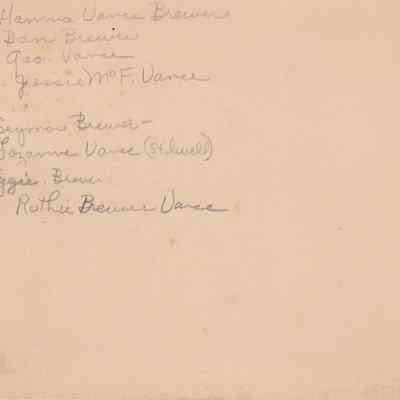 Hanna Vance Brewer
Dan Brewer
Geo. Vance
Jessie McF. Vance
Seymour Brewer -
Lozanne Vance (Stilwell)
Brewer
Ruthie Brewer Vance